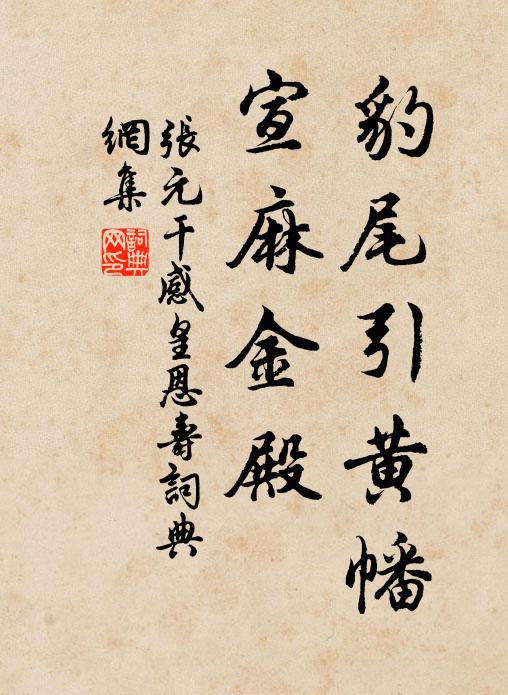 豹尾引黄幡
宣麻金殿
張元干感皇恩壽詞典
網集
詞典網印